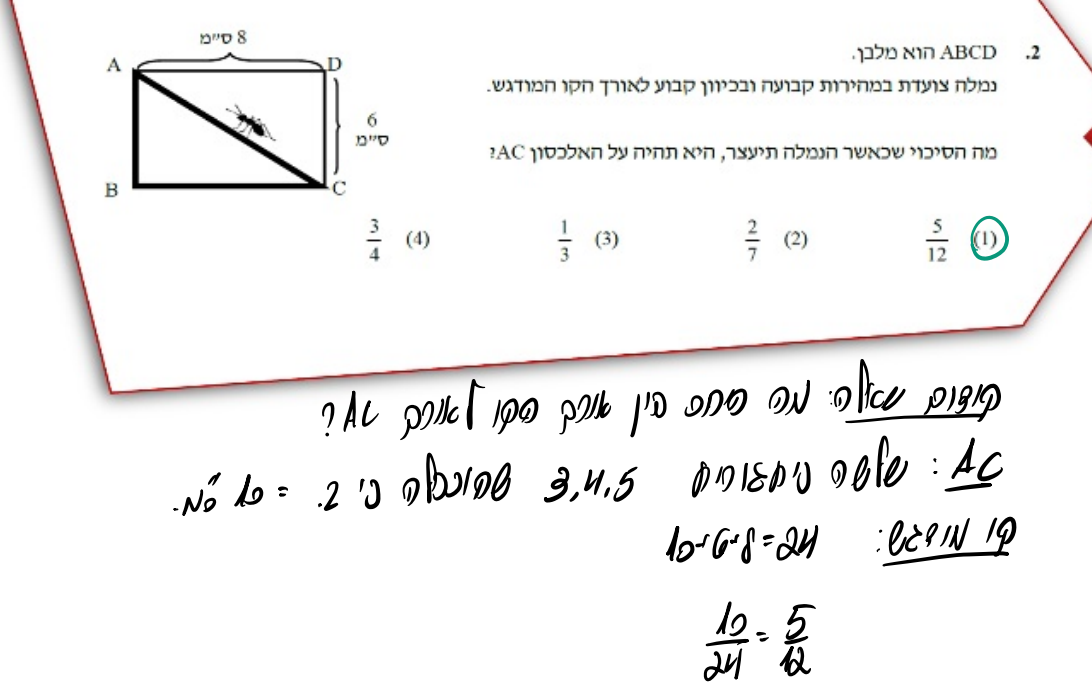 2. ABCD הוא מלבן.
נמלה צועדת במהירות קבועה ובכיוון קבוע לאורך הקו המודגש.
מה הסיכוי שכאשר הנמלה תיעצר, היא תהיה על האלכסון AC?
8 ס"מ
A
D
6
ס"מ
B
C
(1) 5/12 (2) 2/7 (3) 1/3 (4) 3/4
קידום שאלה: מה היחס בין אורך הקו לאורך AC?
AC: שלשה פיתגורית 3,4,5 שהוגדלה פי 2. = 10 ס"מ.
קו מודגש: 10+6+8=24
10/24 = 5/12